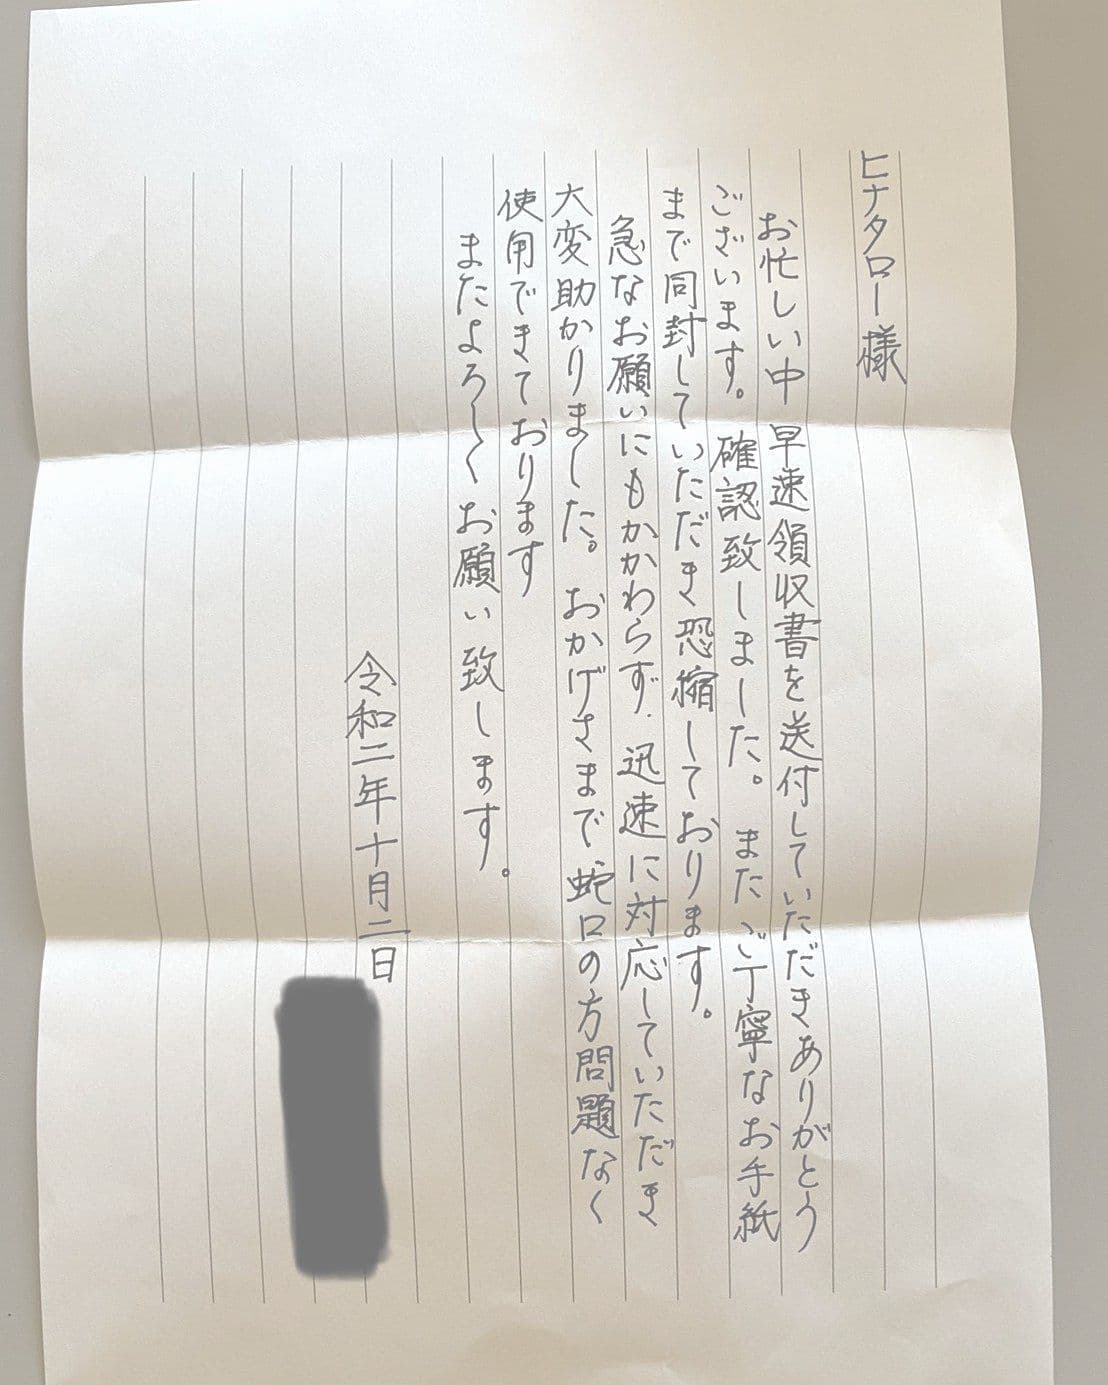 ヒナタロー様
お忙しい中 早速領収書を送付していただきありがとう
ございます。 確認致しました。 またご丁寧なお手紙
まで同封していただき恐縮しております。
急なお願いにもかかわらず、迅速に対応していただき
大変助かりました。 おかげさまで、蛇口の方問題なく
使用できております
またよろしくお願い致します。
令和二年十月二日